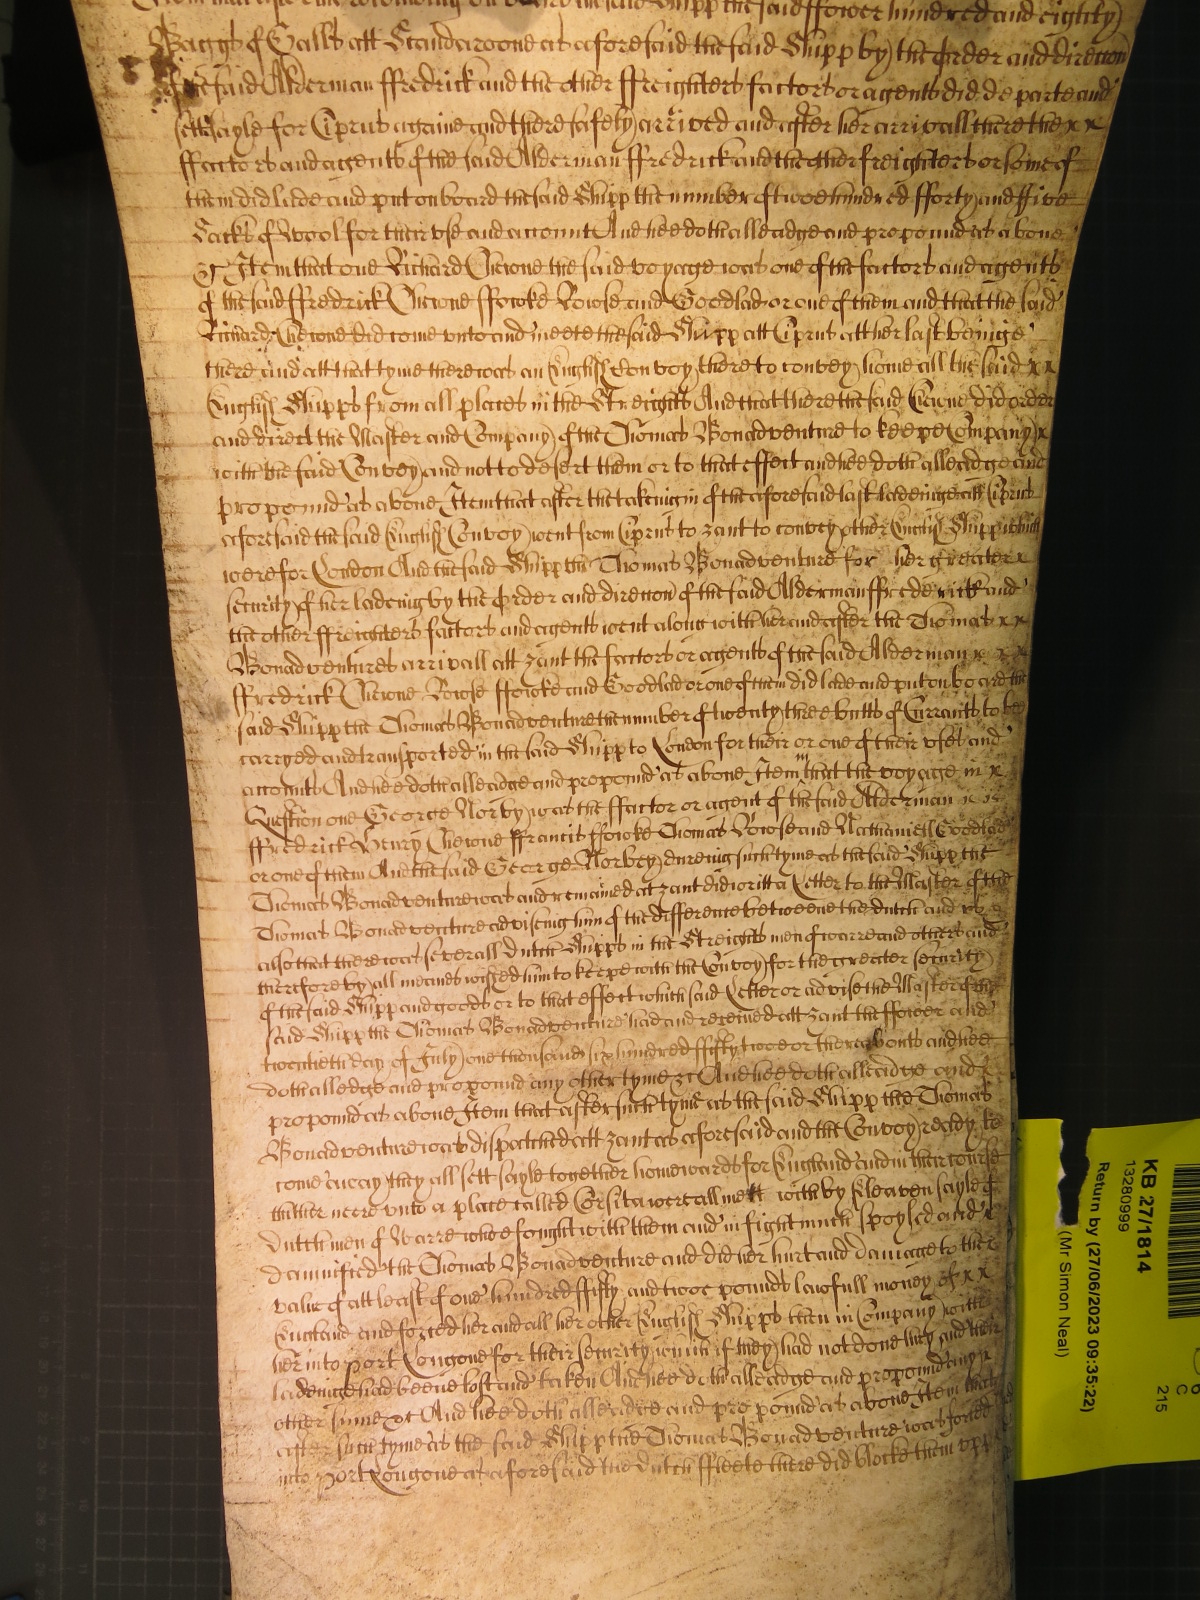 on board the said Shipp the said ffower hundred and eightly
Baggs of Galls att Scandaroone as aforesaid the said Shipp by the order and direccon
of the said Alderman ffredrick and the other ffreighters factors or agents did departe and
sett sayle for Ciprus againe and there safely arrived and after her arrivall there the x x
ffactors and agents of the said Alderman ffredrick and the other freighters or some of
them did lade and put on board the said Shipp the number of twoe hundred fforty and ffive
Sacks of Wooll for their vse and account And hee doth alleadge and propound as above
9 Item that one Richard Chewne the said voyage was one of the factors and agents
of the said ffredrick Chewne ffowke Rowse and Goodlad or one of them and that the said
Richard Chewne did come vnto and meete the said Shipp att Ciprus att her last beinge
there and att that tyme there was an English Convoy there to convey home all the said x x
English Shipps from all places in the Streights And that there the said Chewne did order
and direct the Master and Company of the Thomas Bonadventure to keepe Company x
with the said Convoy and not to desert them or to that effect and hee doth alleadge and
propound as above Item that after the takeing in of the aforesaid last ladeinge att Ciprus
aforesaid the said English Convoy went from Ciprus to Zant to convey other English Shipps which
were for London And the said Shipp the Thomas Bonadventure for her greater x
security of her ladeing by the order and direccon of the said Alderman ffrederick and
the other ffreighters factors and agents went along with her and after the Thomas x x
Bonadventures arrivall att Zant the factors or agents of the said Alderman x x x
ffredrick Chewne Rowse ffowke and Goodlad or one of them did lade and put on board the
said Shipp the Thomas Bonadventure the number of twenty three butts of Currants to be
carryed and transported in the said Shipp to London for their or one of their vses and
accounts And hee doth alleadge and propound as above Item that the voyage in x
Question one George Norby was the ffactor or agent of the said Alderman x x
ffredrick Henry Chewne ffrancis ffowke Thomas Rowse and Nathaniell Goodlad
or one of them And the said George Norbey dureing such tyme as the said Shipp the
Thomas Bonadventure was and remained at Zant did write a Letter to the Master of the
Thomas Bonadventure adviseing him of the difference betweene the dutch and vs
also that there was severall Dutch Shipps in the Streights men of warre and others and
therefore by all meanes wished him to keepe with the Convoy for the greater security
of the said Shipp and goods or to that effect which said Letter or advise the Master of the
said Shipp the Thomas Bonadventure had and received att Zant the ffower and
twentieth day of July one thousand six hundred ffifty twoe or thereabouts and hee
doth alledge and propound any other tyme &c And hee doth alleadge and x
propound as above Item that after such tyme as the said Shipp the Thomas
Bonadventure was dispatched att Zant as aforesaid and the Convoy ready to
come away they all sett sayle together homewards for England and in their course
thither neere vnto a place called Corsica were all mett with by Eleaven sayle of
dutch men of Warre whoe fought with them and in fight much spoyled and x
damnified the Thomas Bonadventure and did her hurt and damage to the
value of att least of one hundred ffifty and twoe pounds lawfull money of x x
England and forced her and all her other English Shipps then in Company with
her into Port Longone for their security which if they had not done they and their
ladeinge had beene lost and taken And hee doth alleadge and propound any x
other summe &c And hee doth alleadge and propound as above Item that
after such tyme as the said Shipp the Thomas Bonadventure was forced
into Port Longone as aforesaid the dutch ffleete there did blocke them vpp
KB 27/1814
13280999
Return by (27/06/2023 09:35:22)
(Mr Simon Neal)
215
C